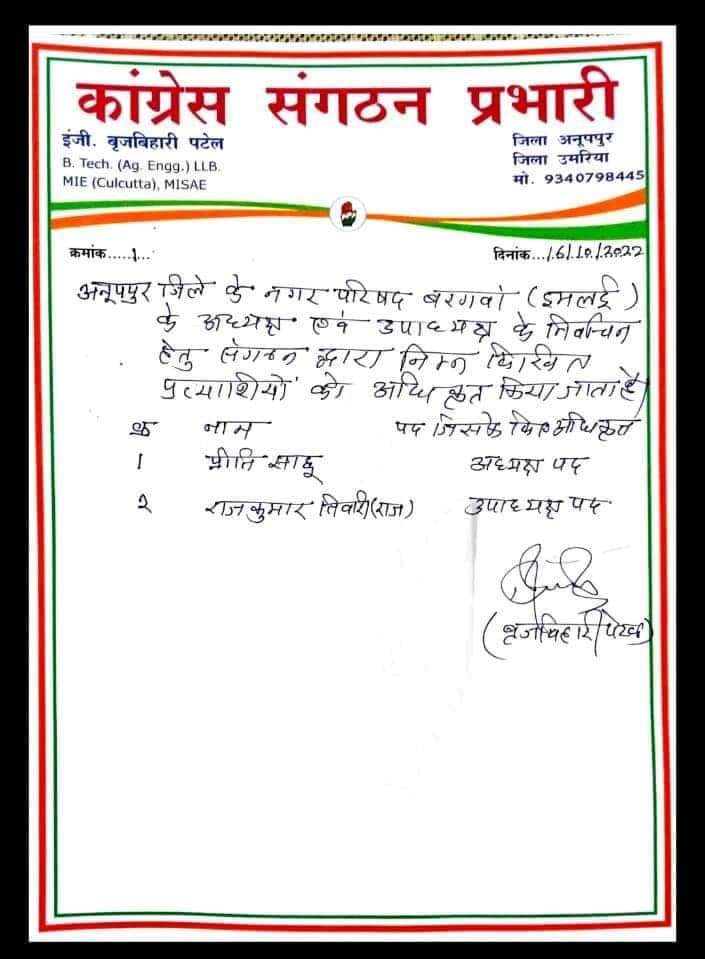 कांग्रेस संगठन प्रभारी
इंजी. बृजबिहारी पटेल
B. Tech. (Ag. Engg.) LLB.
MIE (Culcutta), MISAE
जिला अनूपपुर
जिला उमरिया
मो. 9340798445
क्रमांक.....1...
दिनांक...16/10/2022
अनूपपुर जिले के नगर परिषद बरगवां (इमलई)
के अध्यक्ष एवं उपाध्यक्ष के निर्वाचन
हेतु संगठन द्वारा निम्न लिखित
प्रत्याशियों को अधिकृत किया जाता है।
क्र नाम पद जिसके लिए अधिकृत
1 प्रीति साहू अध्यक्ष पद
2 राजकुमार तिवारी (राज) उपाध्यक्ष पद
(बृजबिहारी पटेल)